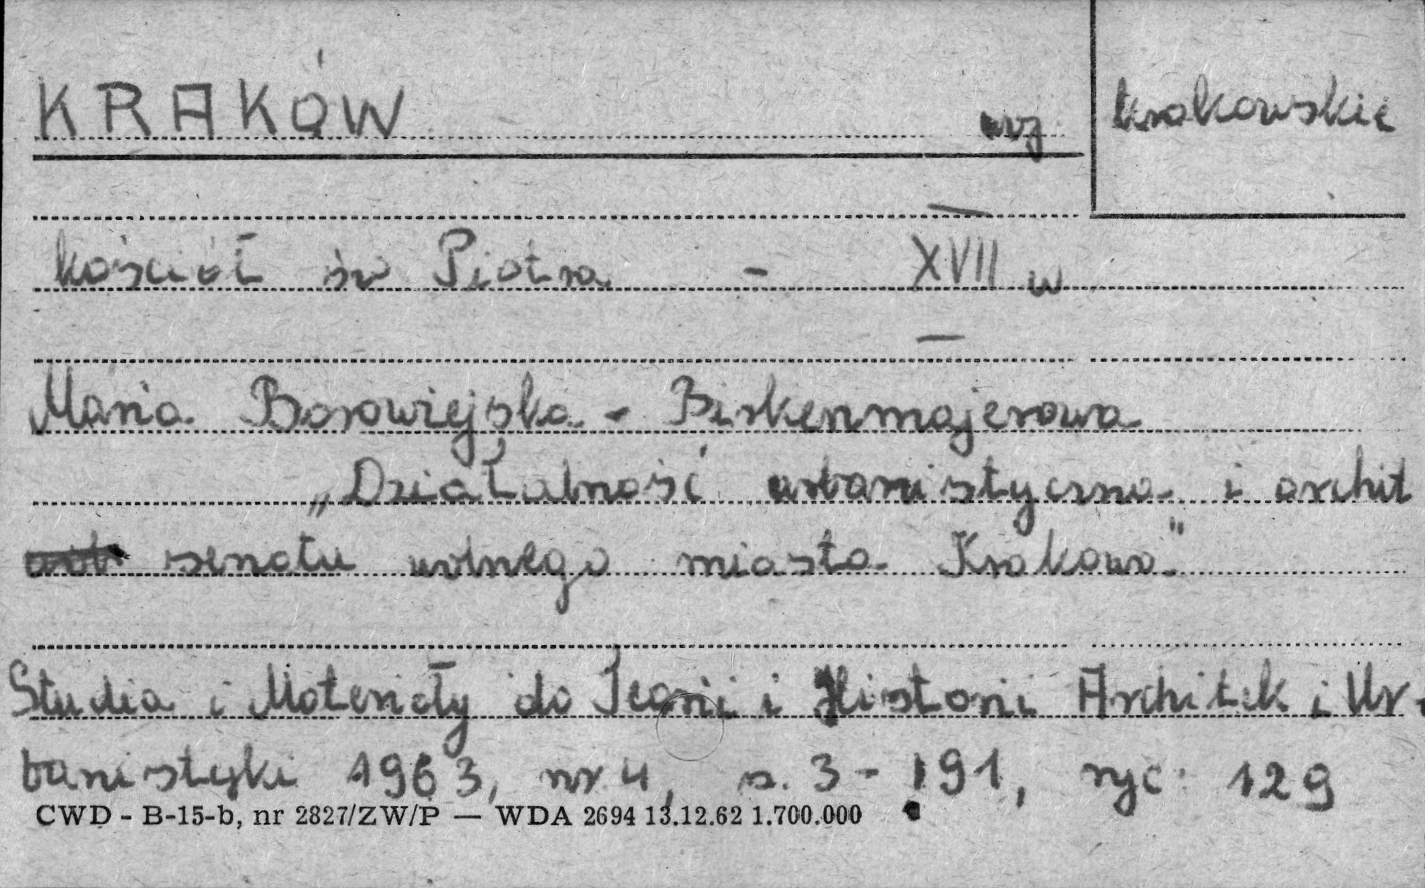 KRAKÓW woj krakowskie
kościół św Piotra - XVII w
Maria Borowiejska - Birkenmajerowa
„Działalność urbanistyczna i archit
senatu wolnego miasta Krakowa"
Studia i Materiały do Teorii i Historii Architek i Ur-
banistyki 1963, nr 4, s. 3 - 191, ryc. 129
CWD - B-15-b, nr 2827/ZW/P — WDA 2694 13.12.62 1.700.000